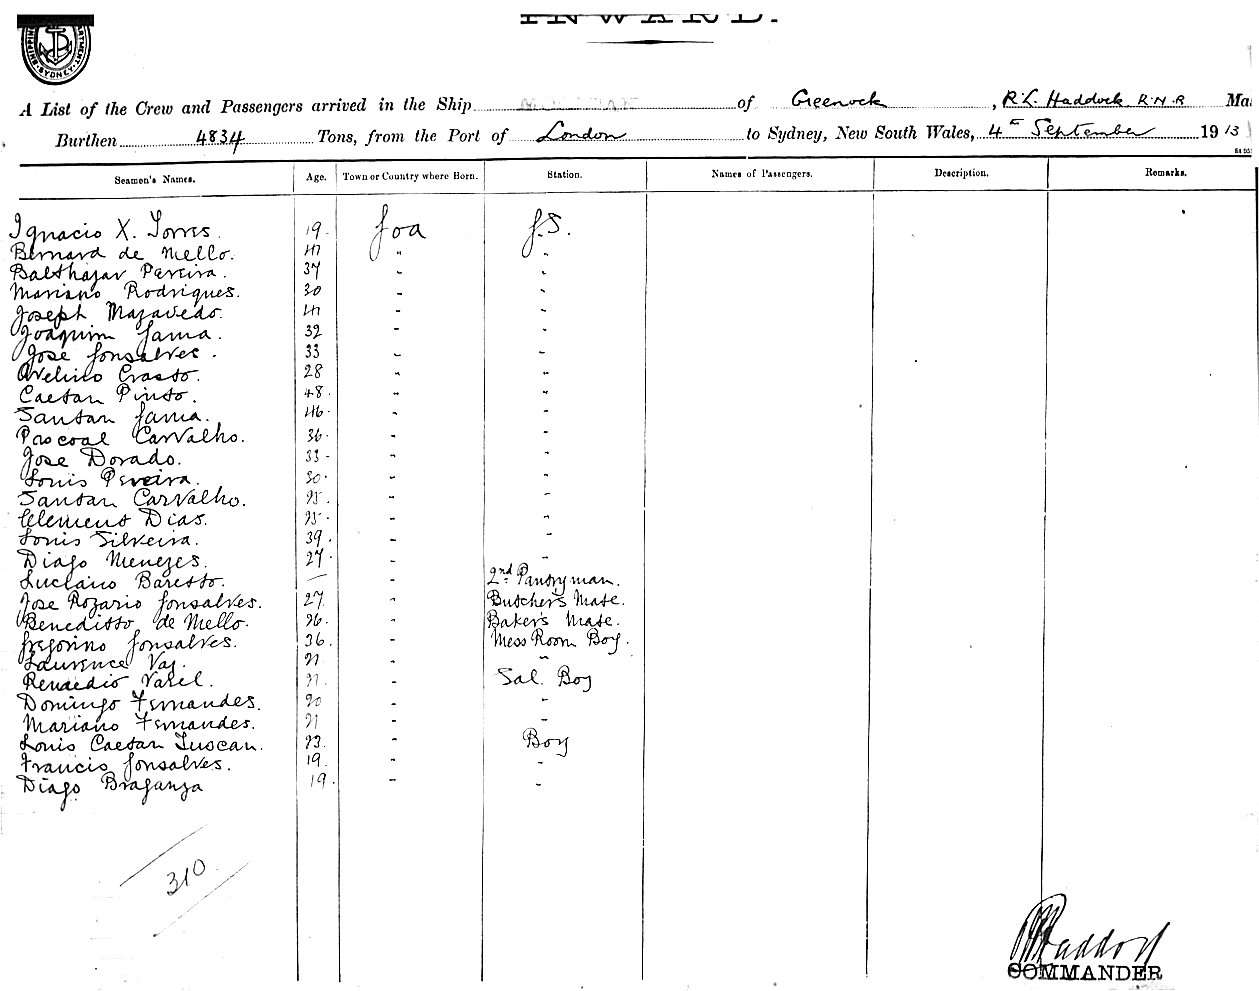 INWARD.
SHIPPING DEPARTMENT. SYDNEY.
A List of the Crew and Passengers arrived in the Ship of Greenock, R.L. Haddock R.N.R Ma
Burthen 4834 Tons, from the Port of London to Sydney, New South Wales, 4th September 1913
Seamen's Names. Age. Town or Country where Born. Station. Names of Passengers. Description. Remarks.
Ignacio X. Torres. 19. Goa G.S.
Bernard de Mello. 41 " "
Balthazar Pereira. 37 " "
Mariano Rodrigues. 30 " "
Joseph Mazavedo. 41 " "
Joaquim Gama. 32 " "
Jose Gonsalves. 33 " "
Avelino Crasto. 28 " "
Caetan Pinto. 48. " "
Santan Gama. 46. " "
Pascoal Carvalho. 36. " "
Jose Dorado. 33 - " "
Louis Pereira. 30. " "
Santan Carvalho. 25. " "
Clement Dias. 25. " "
Louis Silveira. 39. " "
Diago Menezes. 27. " "
Luciano Baretto. — " 2nd Pantryman.
Jose Rozario Gonsalves. 27. " Butcher's Mate.
Beneditto de Mello. 26. " Baker's Mate.
Gregorino Gonsalves. 36. " Mess Room Boy.
Laurence Vaz. 21. " "
Renaedio Varel. 21. " Sal. Boy
Domingo Fernandes. 20 " "
Mariano Fernandes. 21 " "
Louis Caetan Tuscan. 23. " Boy
Francis Gonsalves. 19. " "
Diago Braganza 19. " "
310
Haddock
COMMANDER